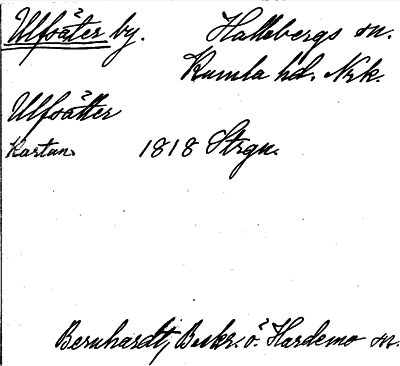 Ulfsäter by. Hallsbergs sn.
Kumla hd. Nrk.
Ulfsätter
Kartan. 1818 Strgn.
Bernhardt, Beskr. ö. Hardemo sn.